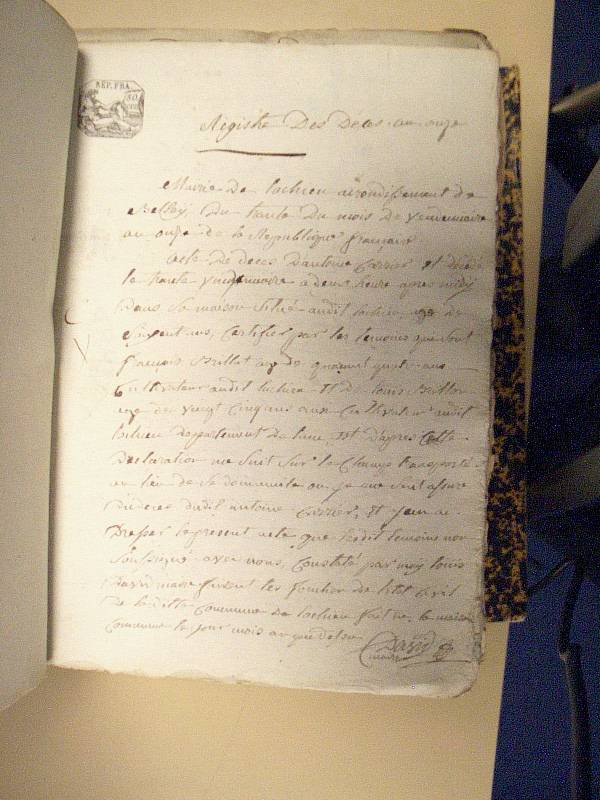 REP. FRA.
Registre Des Deces an onze
Mairie De lachieu arrondissement de
Belley, Du trante Du mois De vendemiaire
an onze de la Republique française
acte De deces D'antoine Carrier et décédé
le trante vendemiaire a deux heure apres midy
Dans sa maison situé audit lachieu age de
ans, Certifier par les temoins que sont
françois Billot age de quarant ans
Cultivateur audit lachieu Et De louis Billon
age de vingt Cinq ans Cultivateur audit
lachieu departement De l'ain, Et D'apres Cette
Declaration me suis sur le Champ transporté
au lieu de Ce domicille ou je me suis assure
du deces dudit antoine Carrier, Et j'en ai
Dresser le present acte que lesdit temoins non
soussigné avec nous, Constaté par moy louis
David maire faisant les fonction de l'etat Civil
De laditte Commune De lachieu fait en la maison
Commune le jour mois an que dessu
David
maire